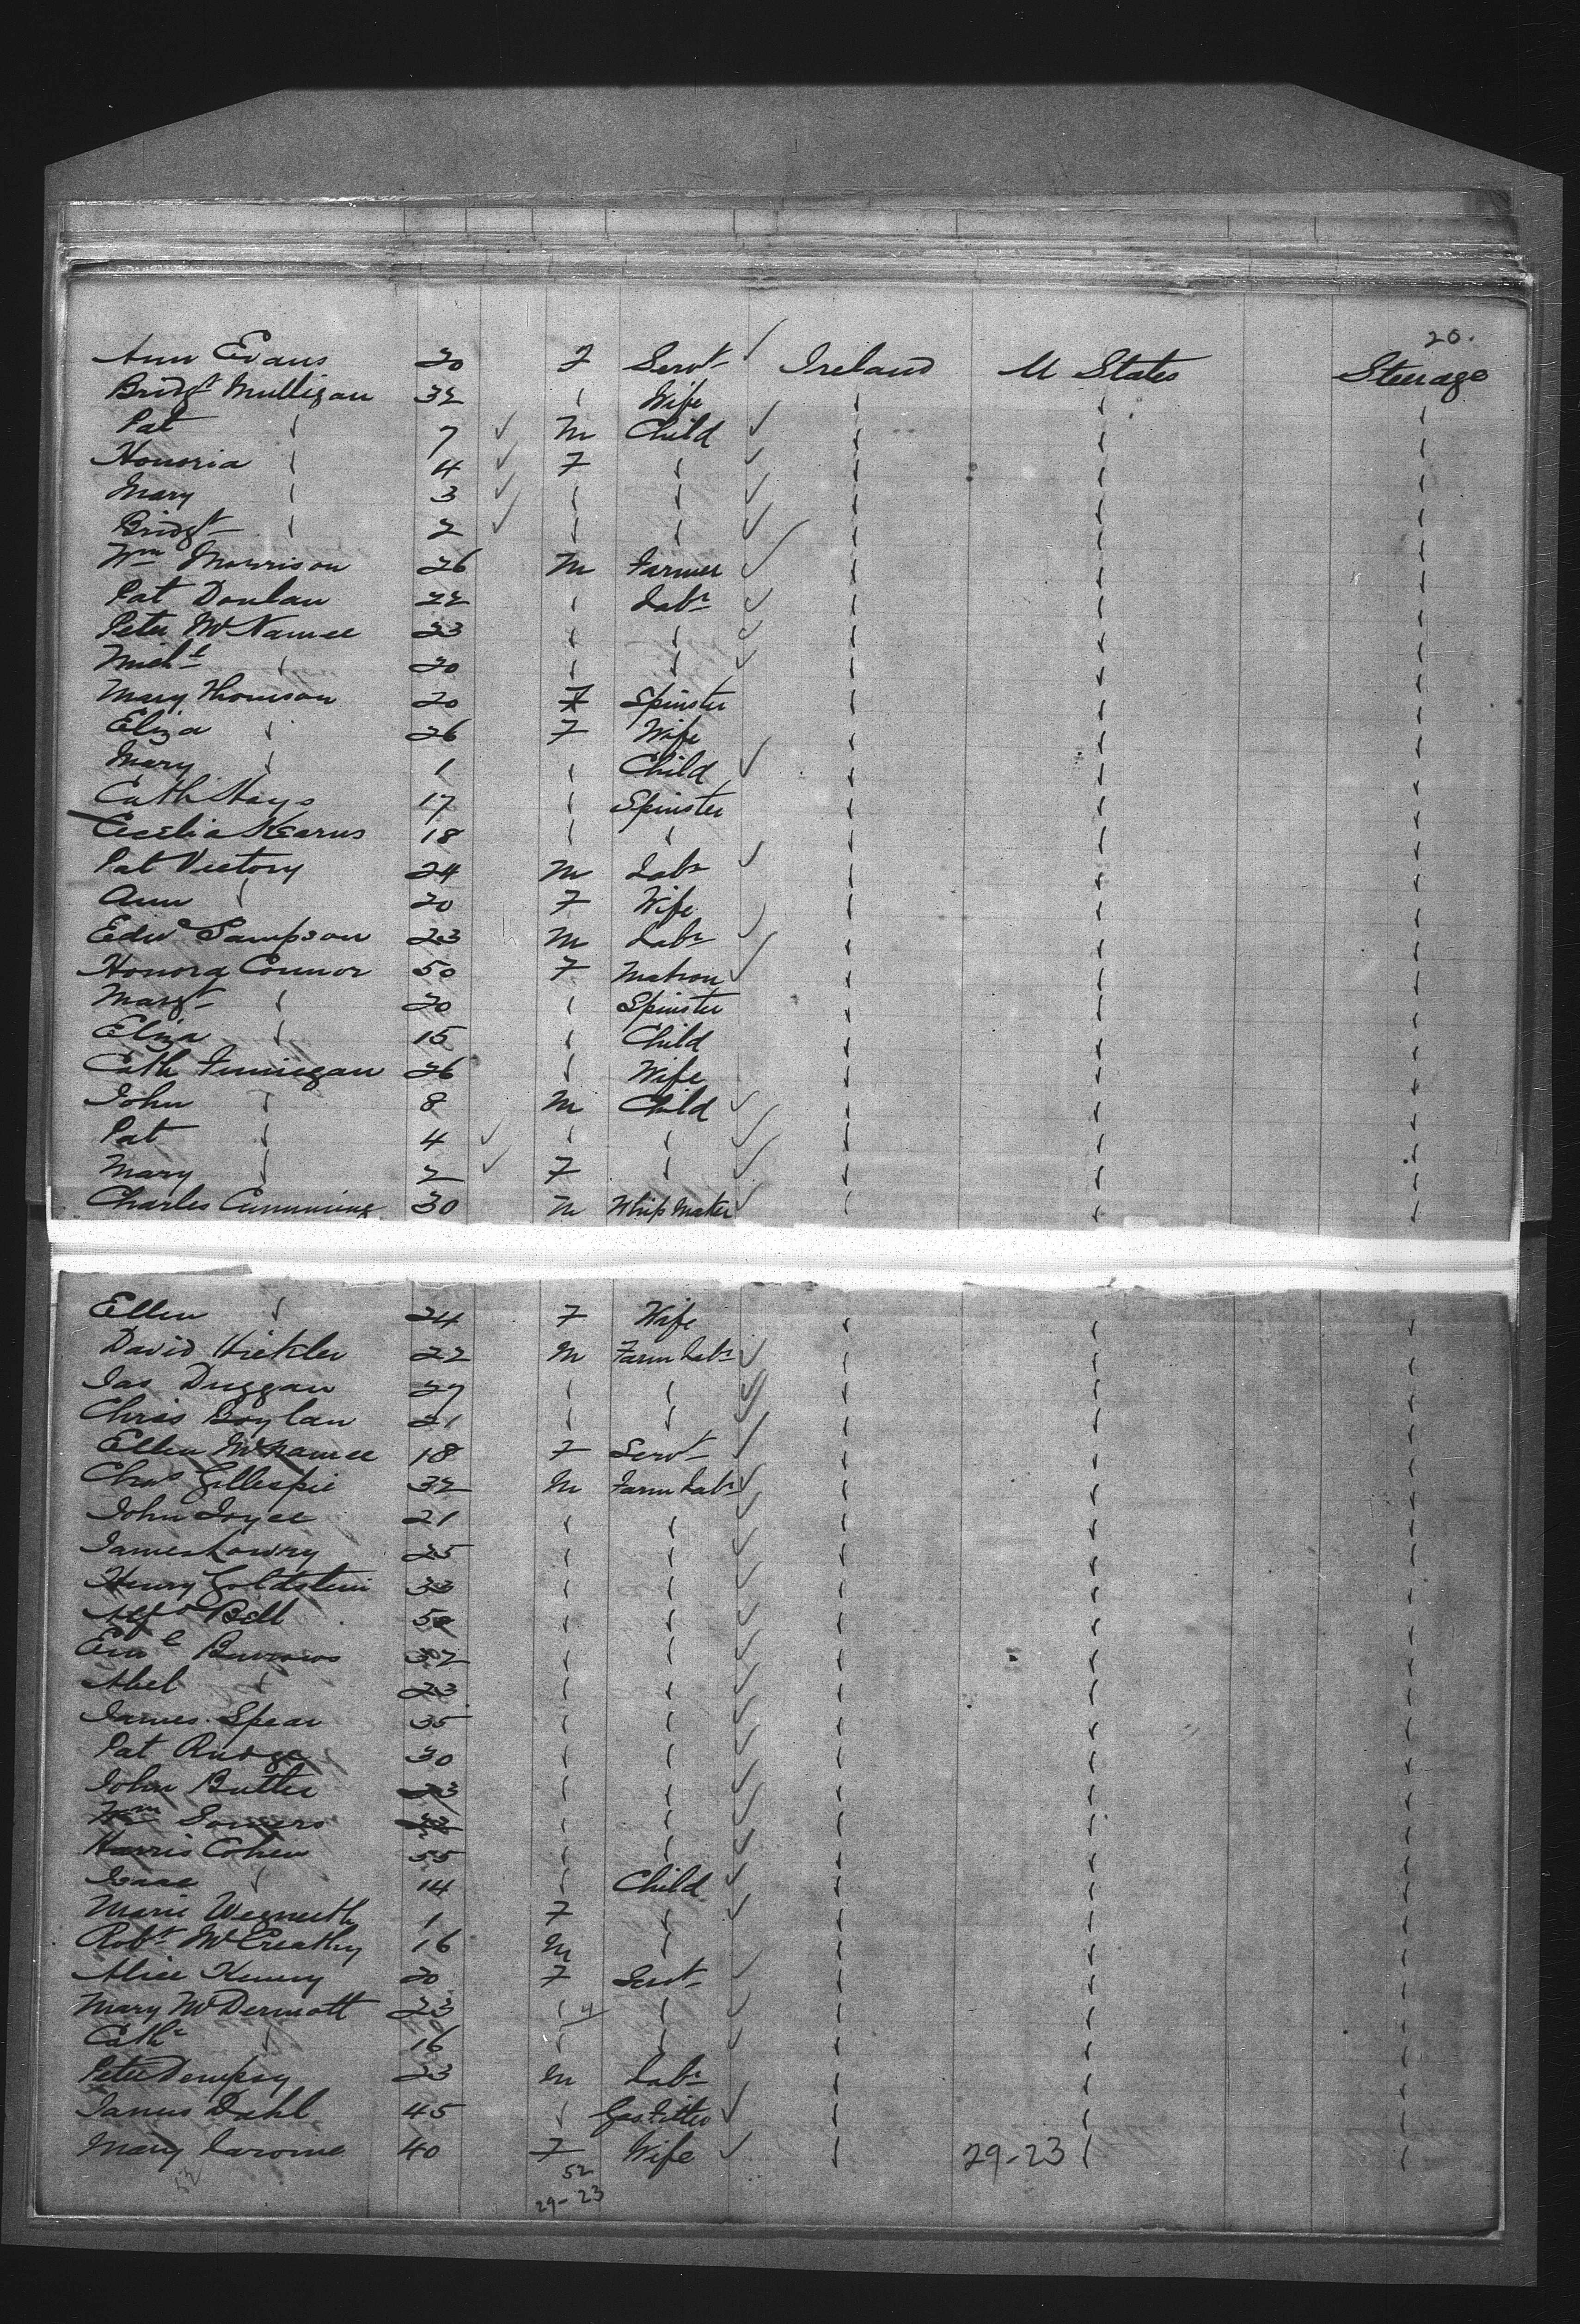 20.
Ann Evans 20 F Servt Ireland U States Steerage
Bridgt Mulligan 32 " Wife " " "
Pat " 7 M Child " " "
Honoria " 4 F " " " "
Mary " 3 " " " " "
Bridgt " 2 " " " " "
Wm Morrison 26 M Farmer " " "
Pat Donlan 22 " Labr " " "
Peter McNamee 23 " " " " "
Michl " 20 " " " " "
Mary Thomson 20 F Spinster " " "
Eliza " 26 F Wife " " "
Mary " 1 " Child " " "
Cath Hays 17 " Spinster " " "
Cecelia Kearns 18 " " " " "
Pat Victory 24 M Labr " " "
Ann " 20 F Wife " " "
Edwd Sampson 23 M Labr " " "
Honora Connor 50 F Matron " " "
Margt " 20 " Spinster " " "
Eliza " 15 " Child " " "
Cath Finnegan 26 " Wife " " "
John " 8 M Child " " "
Pat " 4 " " " " "
Mary " 2 F " " " "
Charles Cumming 30 M Whip Maker " " "
Ellen " 24 F Wife " " "
David Hickler 22 M Farm Labr " " "
Jas Duggan 27 " " " " "
Chris Boylan 21 " " " " "
Ellen McNamee 18 F Servt " " "
Chas Gillespie 32 M Farm Labr " " "
John Joyce 21 " " " " "
James Lowry 25 " " " " "
Henry Goldstein 33 " " " " "
Alfd Bell 50 " " " " "
Burrows 32 " " " " "
Abel " 23 " " " " "
James Spear 35 " " " " "
Pat Rudge 30 " " " " "
John Butler 23 " " " " "
Wm Somers 22 " " " " "
Harris Cohen 55 " " " " "
Isaac " 14 " Child " " "
Marie 1 F " " " "
Robt McCreathy 16 M " " " "
Alice Kenny 20 F Servt " " "
Mary McDermott 23 " 4 " " " "
Cathe " 16 " " " " "
Peter Dempsey 23 M Labr " " "
James Dahl 45 " Gas Fitter " " "
Mary Jarome 40 F Wife " 29-23 " "
52
29-23